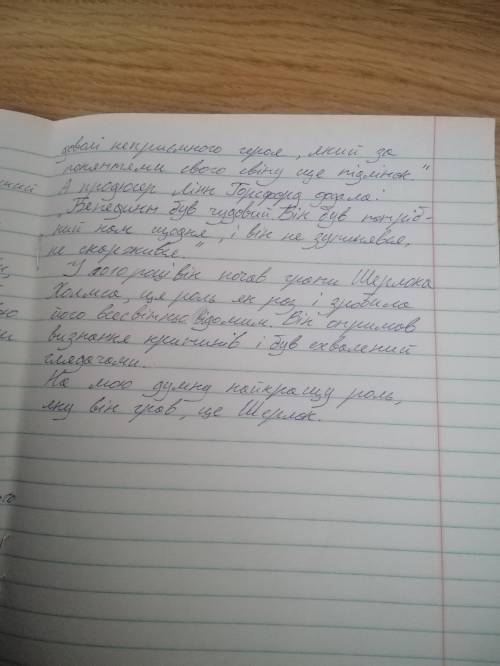 доволі неприємного героя, який за
поняттями свого світу ще підліток."
А продюсер Лінн Горсфорд додала:
„Бенедикт був чудовий. Він був потріб-
ний нам щодня, і він не зупинявся,
не скаржився."
У році він почав грати Шерлока
Холмса, ця роль як раз і зробила
його всесвітньо відомим. Він отримав
визнання критиків і був схвалений
глядачами.
На мою думку найкращу роль,
яку він грав, це Шерлок.